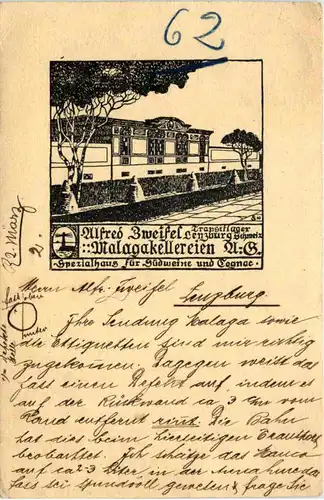 62
Alfred Zweifel Transitlager
Lenzburg Schweiz
::Malagakellereien A.-G.
·Spezialhaus für Südweine und Cognac·
März
Herrn Alfr. Zweifel
Lenzburg.
Ihre Sendung Malaga sowie
die Etiquetten sind mir richtig
zugekommen. Dagegen weist das
Fass einen Defekt auf, indem es
auf der Rückwand ca 3 cm vom
Rand entfernt rinnt. Die Bahn
hat dies beim hierseitigen
beobachtet. Ich schätze das Manco
auf ca 2-3 Liter in der Annahme das
Fass sei spundvoll gewesen & frage Sie